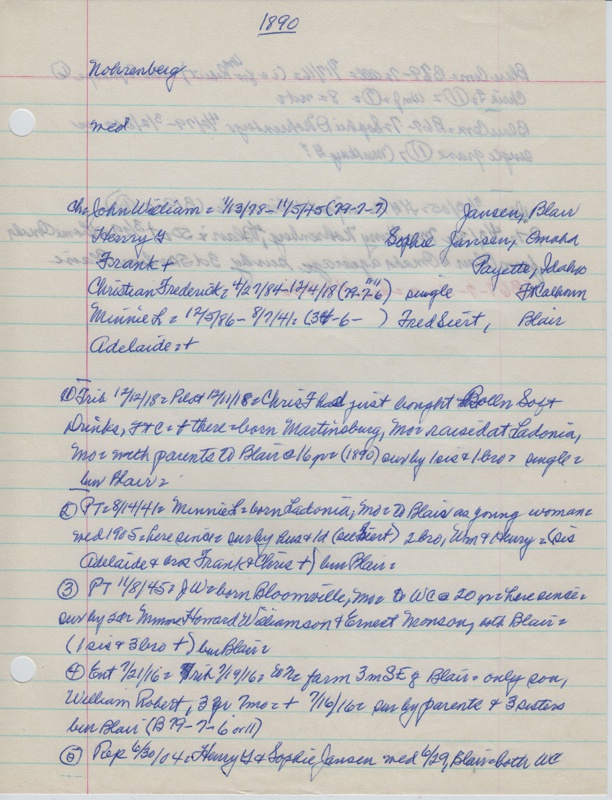 1890
Nohrenberg
med
ch= John William = 1/13/78 - 11/5/45 (79-7-7) Jansen, Blair
Henry G Sophie Jansen, Omaha
Frank + Payette, Idaho
Christian Frederick = 4/27/84 - 12/4/18 (79-7-6) single Ft Calhoun
Minnie L = 12/5/86 - 8/7/41 = (34-6- ) Fred Siert, Blair
Adelaide = +
① Trib 12/12/18 = Pilot 12/11/18 = Chris F had just bought Soft
Drinks, Ft C = + there = born Martinsburg, Mo = raised at Ladonia,
Mo = with parents to Blair @ 16 yr = (1890) sur by 1 sis & 1 bro = single =
bur Blair =
② PT = 8/14/41 = Minnie L = born Ladonia, Mo = to Blair as young woman =
med 1905 = here since = sur by hus & 1d (see Siert) 2 bro, Wm & Henry = (sis
Adelaide & bros Frank & Chris +) bur Blair =
③ PT 11/8/45 = JW = born Bloomville, Mo = to WC @ 20 yr = here since =
sur by 2dr Mmme Howard Williamson & Ernest Monson, both Blair =
(1 sis & 3 bro +) bur Blair =
④ Ent 7/21/16 = Trib 7/19/16 = farm 3m SE of Blair = only son,
William Robert, 3 yr 7mo = + 7/16/16 = sur by parents & 3 sisters
bur Blair (B 79-7-6 or 11)
⑤ Rep 6/30/04 = Henry G & Sophie Jansen med 6/29, Blair = both WC